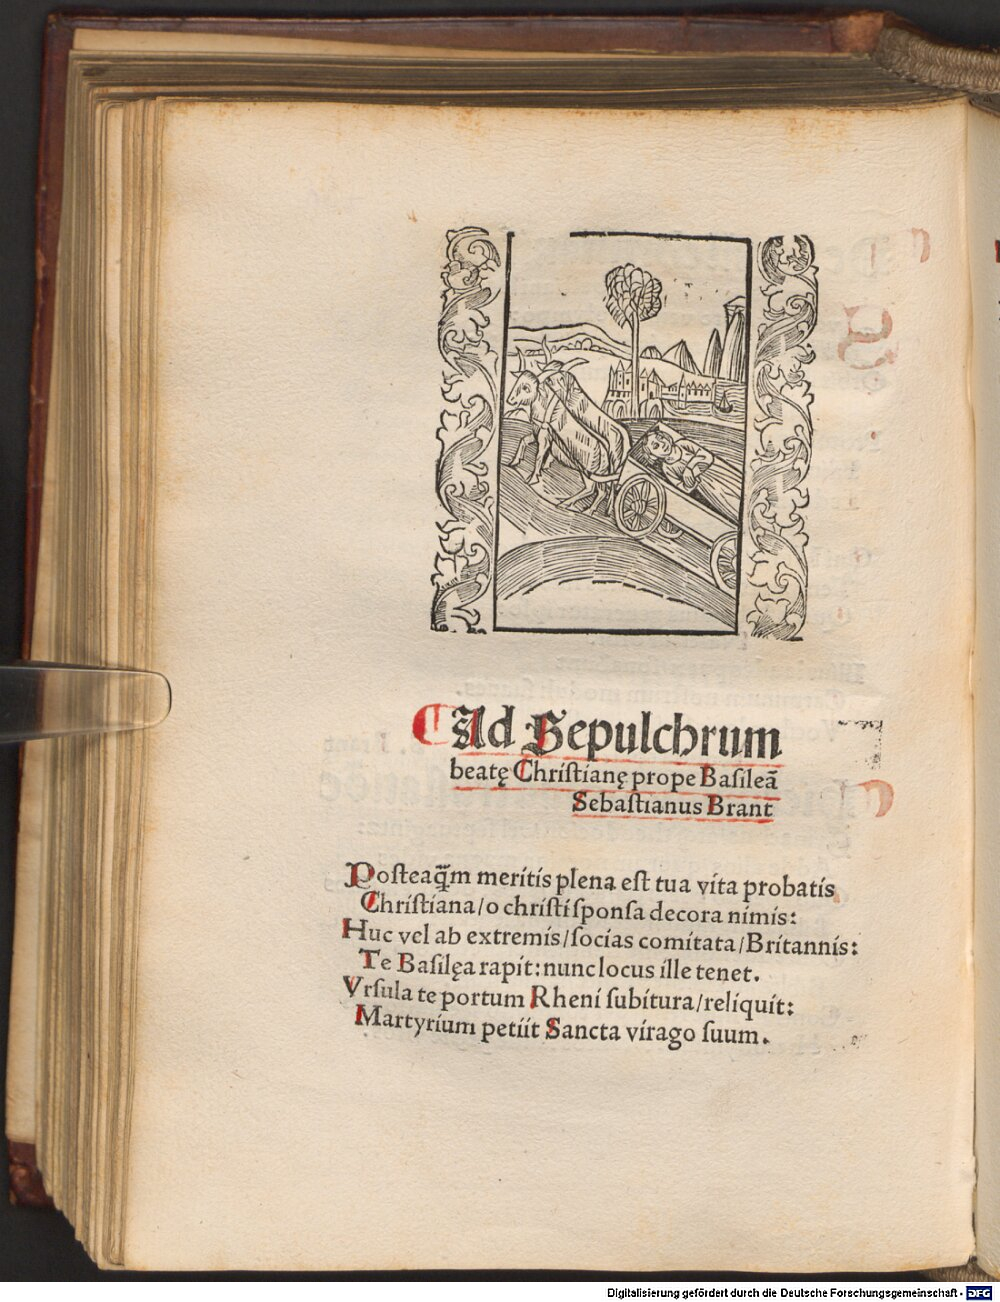 Ad Sepulchrum
beatę Christianę prope Basileā
Sebastianus Brant
Posteaq̃m meritis plena est tua vita probatis
Christiana/o christi sponsa decora nimis:
Huc vel ab extremis/socias comitata/Britannis:
Te Basilęa rapit: nunc locus ille tenet.
Vrsula te portum Rheni subitura/reliquit:
Martyrium petiit Sancta virago suum.
Digitalisierung gefördert durch die Deutsche Forschungsgemeinschaft - DFG